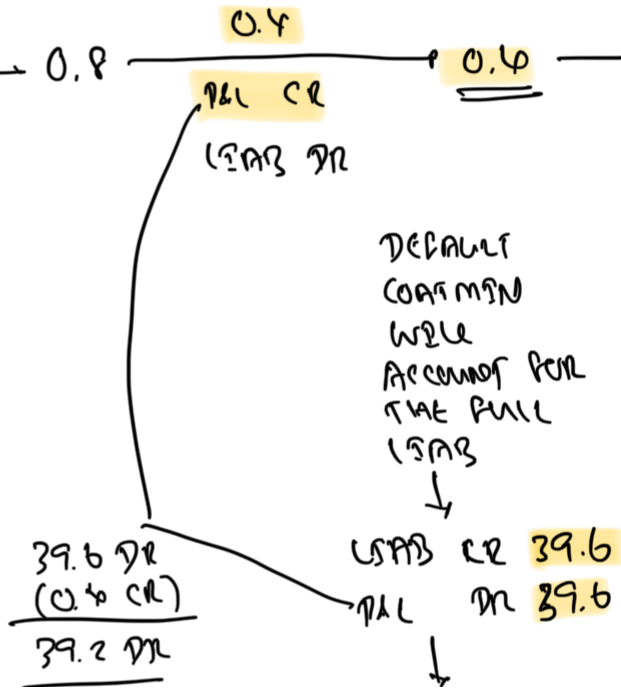 0.4
0.8
0.4
P&L CR
LIAB DR
DEFAULT
CERTAIN
WILL
ACCOUNT FOR
THE FULL
LIAB
39.6 DR
(0.4 CR)
39.2 DR
LIAB CR 39.6
P&L DR 39.6